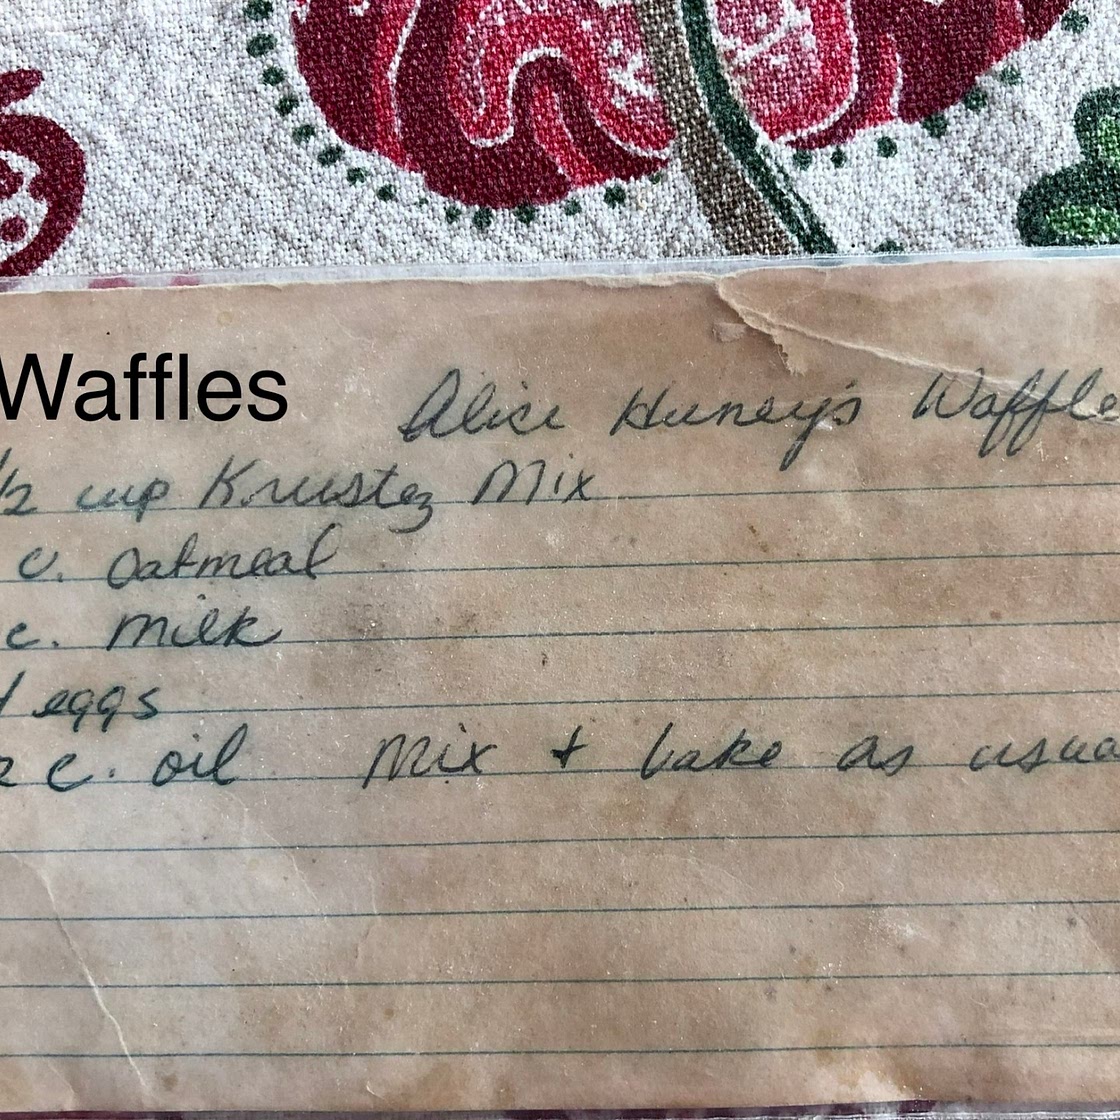 Waffles
Alice Huney's Waffle
/2 cup Krustez Mix
c. Oatmeal
c. Milk
eggs
2 c. oil Mix + bake as usua